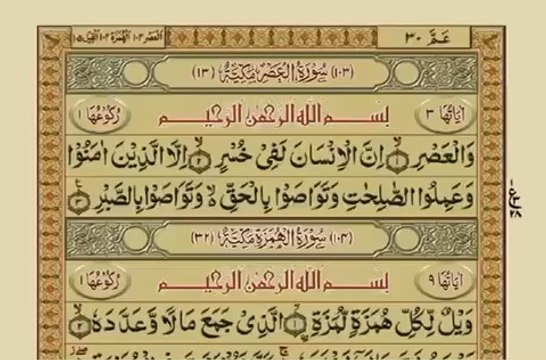 عَمَّ ٣٠ العصر ١٠٣ الهمزة ١٠٤ الفيل ١٠٥
(١٠٣) سُوْرَةُ الْعَصْرِ مَكِّيَّةٌ (١٣)
اٰيَاتُهَا ٣ بِسْمِ اللهِ الرَّحْمٰنِ الرَّحِيْمِ رُكُوْعُهَا ١
وَالْعَصْرِ ۙ﴿١﴾ اِنَّ الْاِنْسَانَ لَفِىْ خُسْرٍ ۙ﴿٢﴾ اِلَّا الَّذِيْنَ اٰمَنُوْا
وَعَمِلُوا الصّٰلِحٰتِ وَتَوَاصَوْا بِالْحَقِّ ۙ وَتَوَاصَوْا بِالصَّبْرِ ﴿٣﴾ ع
(١٠٤) سُوْرَةُ الْهُمَزَةِ مَكِّيَّةٌ (٣٢)
اٰيَاتُهَا ٩ بِسْمِ اللهِ الرَّحْمٰنِ الرَّحِيْمِ رُكُوْعُهَا ١
وَيْلٌ لِّكُلِّ هُمَزَةٍ لُّمَزَةٍ ۙ﴿١﴾ اۨلَّذِىْ جَمَعَ مَالًا وَّعَدَّدَهٗ ۙ﴿٢﴾